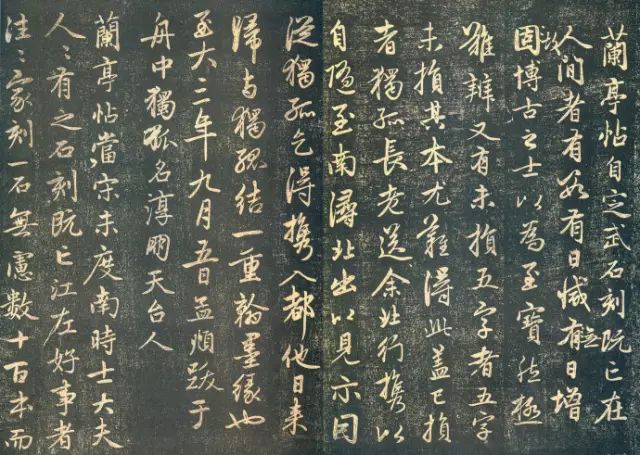 蘭亭帖自定武石刻既亡在
人間者有數有日減有無日增
固故博古之士以為至寶然極
難辨又有未損五字者五字
未損其本尤難得此蓋已損
者獨孤長老送余北行攜以
自隨至南潯北出以見示因
從獨孤乞得攜入都他日來
歸與獨孤結一重翰墨緣也
至大三年九月五日孟頫跋于
舟中獨孤名淳朋天台人
蘭亭帖當宋未度南時士大夫
人〻有之石刻既亡江左好事者
往〻家刻一石無慮數十百本而